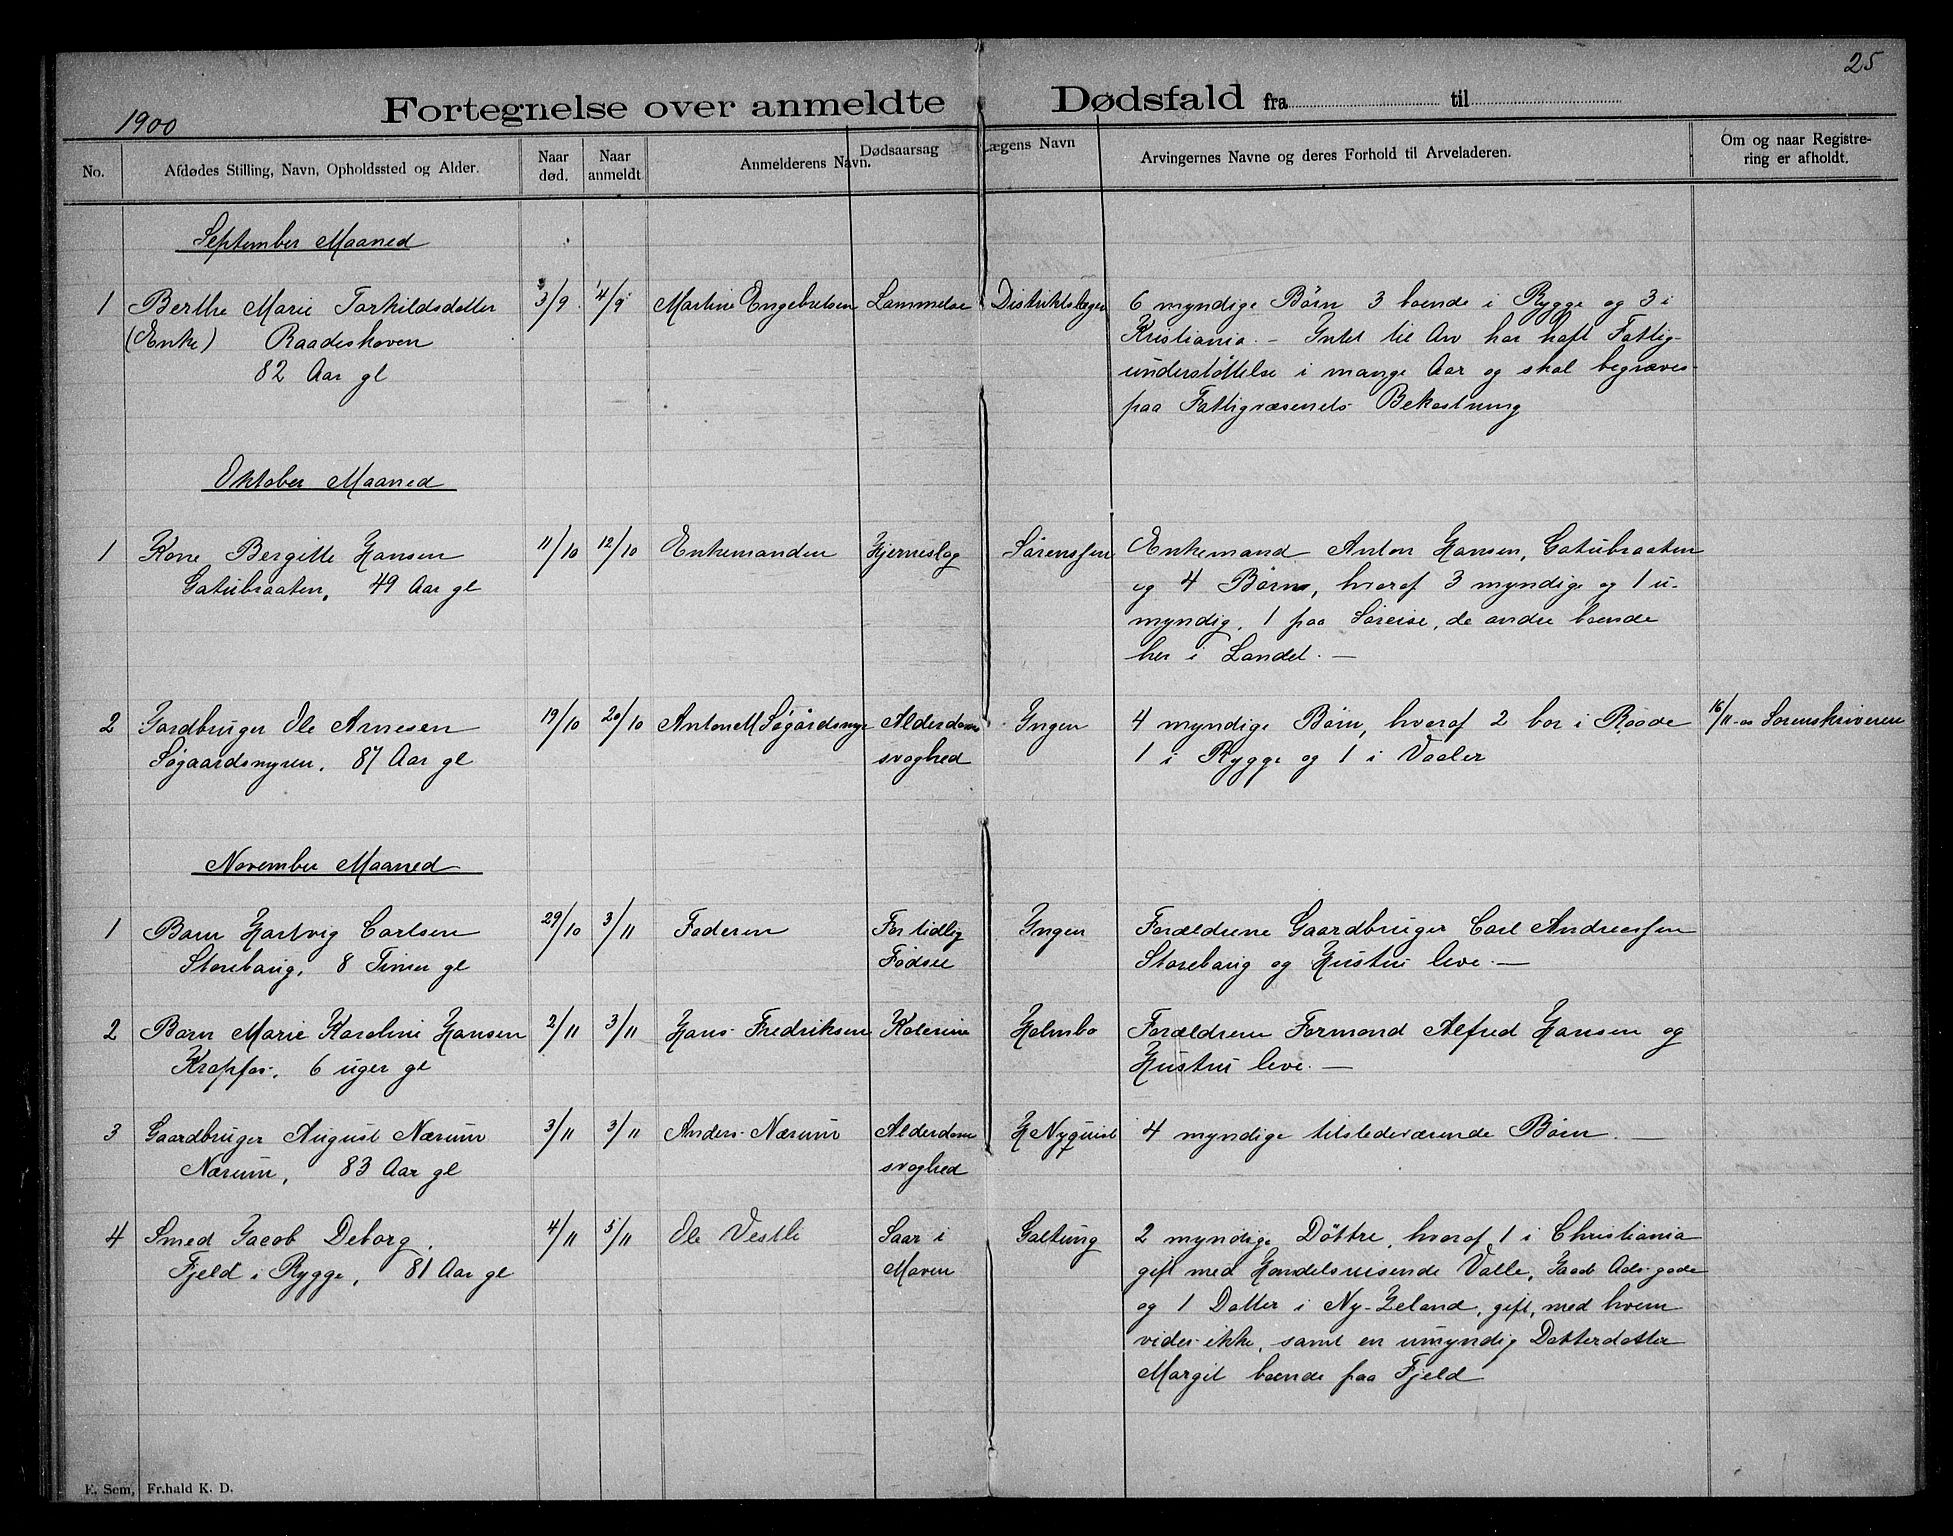 25
1900
Fortegnelse over anmeldte Dødsfald fra til
No.
Afdødes Stilling, Navn, Opholdssted og Alder.
Naar død.
Naar anmeldt
Anmelderens Navn.
Dødsaarsag
Lægens Navn
Arvingernes Navne og deres Forhold til Arveladeren.
Om og naar Registrering er afholdt.
September Maaned
1 Berthe Marie Torkildsdatter 3/9 4/9 Martine Engebretsen Lammelse Distriktslægen 6 myndige Børn 3 boende i Rygge og 3 i
(Enke) Raadeskoven Kristiania. - Intet til Arv har haft Fattig-
82 Aar gl understøttelse i mange Aar og skal begraves
paa Fattigvæsenets Bekostning
Oktober Maaned
1 Kone Bergitte Hansen 11/10 12/10 Enkemanden Hjerneslag Sørenssen Enkemand Anton Hansen, Gatubraaten
Gatubraaten, 49 Aar gl og 4 Børn, hvoraf 3 myndige og 1 u-
myndig, 1 paa Søreise, de andre boende
her i Landet. -
2 Gardbruger Ole Arnesen 19/10 20/10 Anton M Søgårdsmyr Alderdoms 4 myndige Børn, hvoraf 2 bor i Raade 16/11-00 Sorenskriveren
Søgaardsmyren, 87 Aar gl svaghed Ingen 1 i Rygge og 1 i Vaaler
November Maaned
1 Barn Hartvig Carlsen 29/10 3/11 Faderen For tidlig Ingen Forældrene Gaardbruger Carl Andreassen
Storebaug, 8 Timer gl Fødsel Storebaug og Hustru leve. -
2 Barn Marie Karoline Hansen 2/11 3/11 Hans Fredriksen Kolerine Holmbo Forældrene Formand Alfred Hansen og
Krapfos, 6 uger gl Hustru leve. -
3 Gaardbruger August Nærum 3/11 3/11 Anders Nærum Alderdoms H Nyquist 4 myndige tilstedeværende Børn. -
Nærum, 83 Aar gl svaghed
4 Smed Jacob Deborg, 4/11 5/11 Ole Vestli Saar i Galtung 2 myndige Døttre, hvoraf 1 i Christiania
Fjeld i Rygge, 81 Aar gl Maven gift med Handelsreisende Valle,
og 1 Datter i Ny-Zeland, gift, med hvem
vides ikke, samt en umyndig Datterdatter
Margit boende paa Fjeld
E. Sem, Fr.hald K. D.